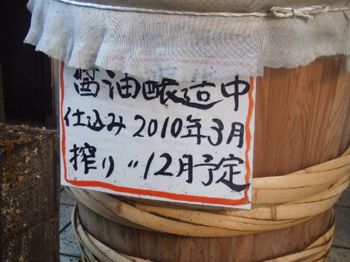 醤油醸造中
仕込み2010年3月
搾り〃12月予定